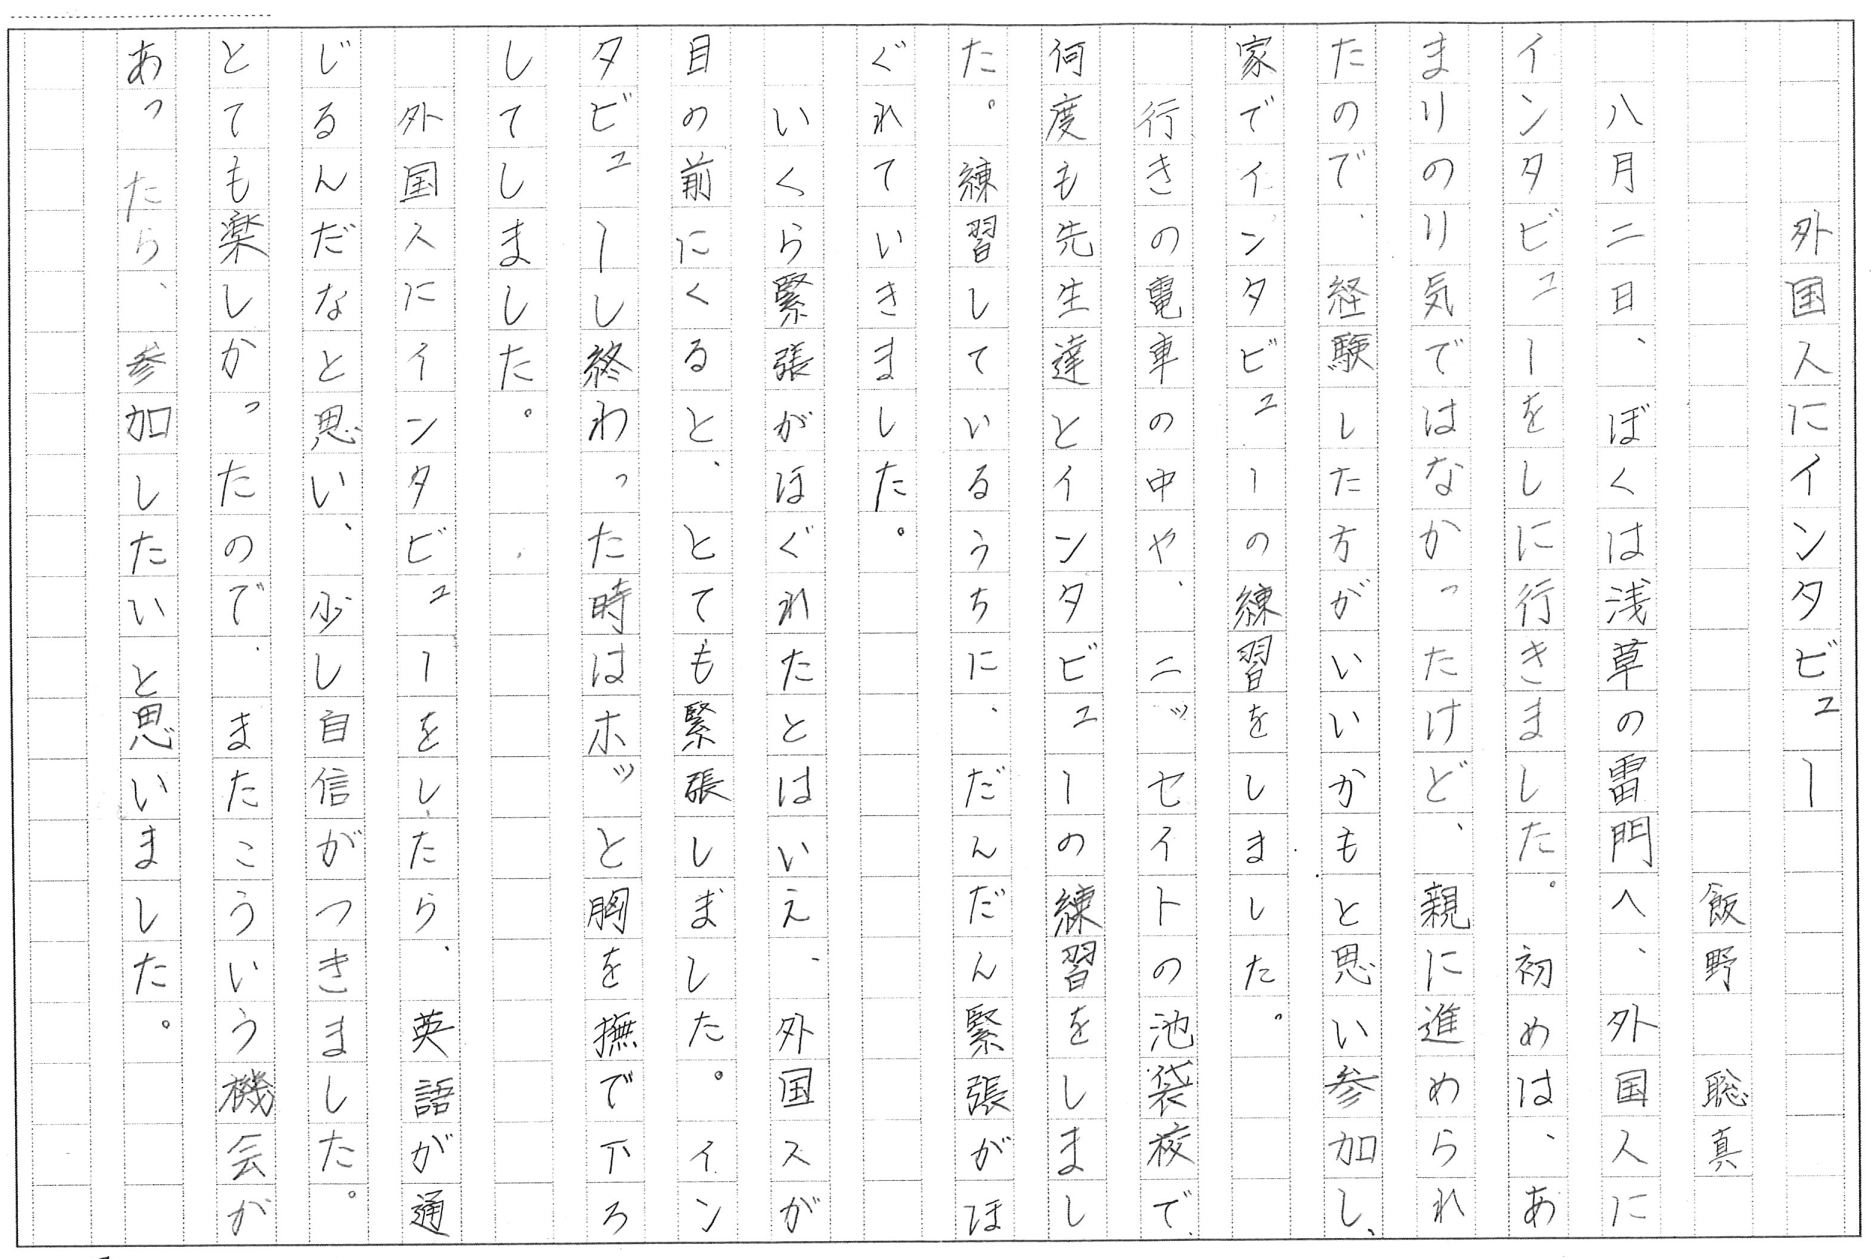 外国人にインタビュー
飯野 聡真
八月二日、ぼくは浅草の雷門へ、外国人に
インタビューをしに行きました。初めは、あ
まりのり気ではなかったけど、親に進められ
たので、経験した方がいいかもと思い参加し、
家でインタビューの練習をしました。
行きの電車の中や、ニッセイトの池袋校で、
何度も先生達とインタビューの練習をしまし
た。練習しているうちに、だんだん緊張がほ
ぐれていきました。
いくら緊張がほぐれたとはいえ、外国人が
目の前にくると、とても緊張しました。イン
タビューし終わった時はホッと胸を撫で下ろ
してしました。
外国人にインタビューをしたら、英語が通
じるんだなと思い、少し自信がつきました。
とても楽しかったので、またこういう機会が
あったら、参加したいと思いました。